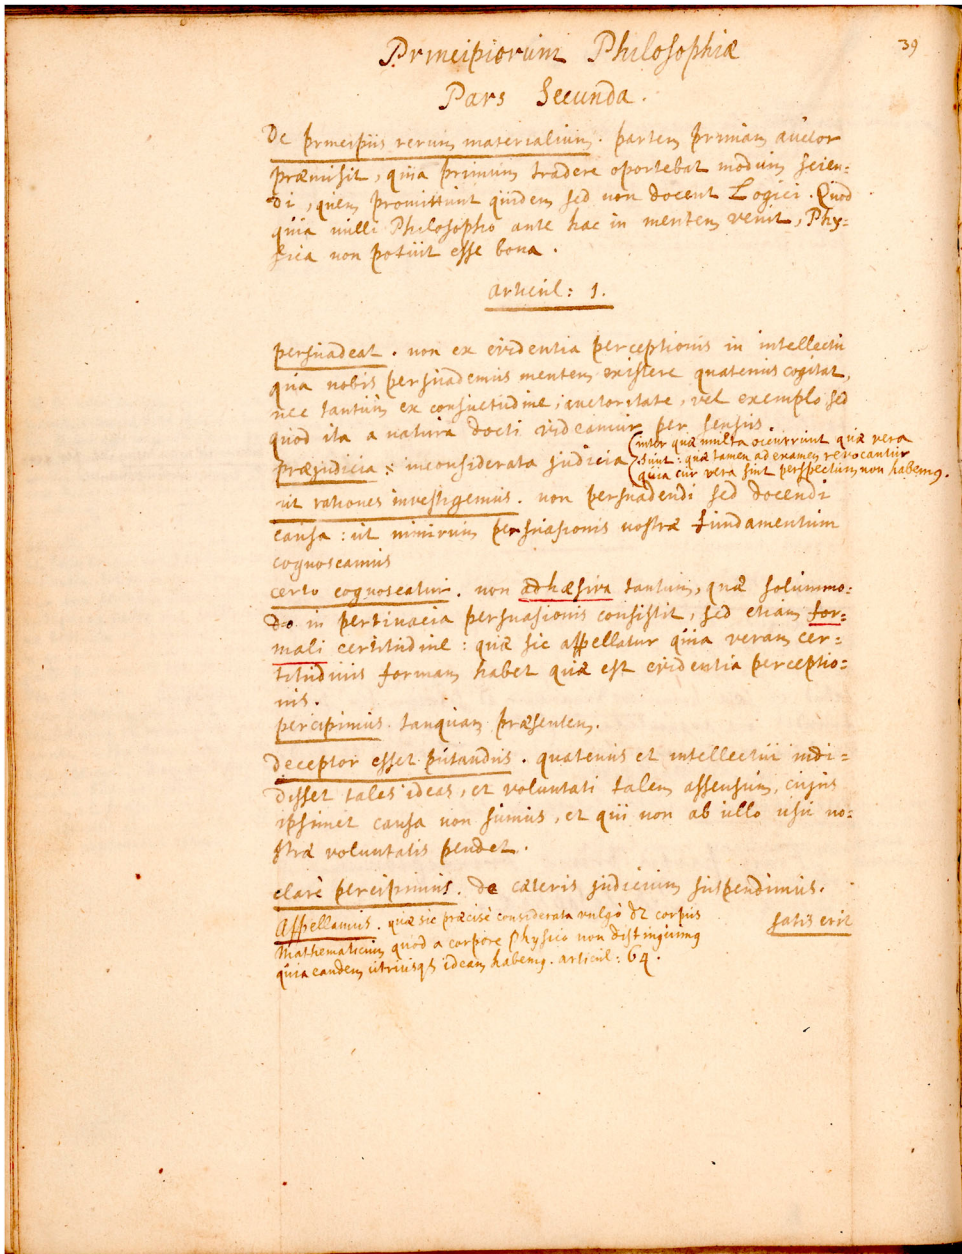 39
Principiorum Philosophiæ
Pars Secunda.
De principiis rerum materialium. partem primam auctor
præmisit, quia primum tradere oportebat modum scien-
di, quem promittunt quidem sed non docent Logici. Quod
quia nulli Philosopho ante hac in mentem venit, Phy-
sica non potuit esse bona.
articul: 1.
persuadeat. non ex evidentia perceptionis in intellectu
qua nobis persuademus mentem existere quatenus cogitat,
nec tantum ex consuetudine, auctoritate, vel exemplo sed
quod ita a natura docti videamur per sensus.
præjudicia : inconsiderata judicia (inter quæ multa occurrunt quæ vera
sunt: quæ tamen ad examen revocantur
quia cur vera sint perspectum non habemq.
ut rationes investigemus. non persuadendi sed docendi
causa: ut nimirum persuasionis nostræ fundamentum
cognoscamus
certo cognoscatur. non adhæsiva tantum, quæ solummo-
do in pertinacia persuasionis consistit, sed etiam for-
mali certitudine: quæ sic appellatur quia veram cer-
titudinis formam habet quæ est evidentia perceptio-
nis.
percipimus tanquam præsentem.
deceptor esset putandus. quatenus et intellectui indi-
disset tales ideas, et voluntati talem assensum, cujus
ipsimet causa non sumus, et qui non ab ullo usu no-
stræ voluntatis pendet.
clarè percipimus. de cæteris judicium suspendimus.
satis erit
Appellamus. quæ sic præcisè considerata vulgò dr corpus
Mathematicum quod a corpore physico non distinguimq
quia eandem utriusq ideam habemq. articul: 64.